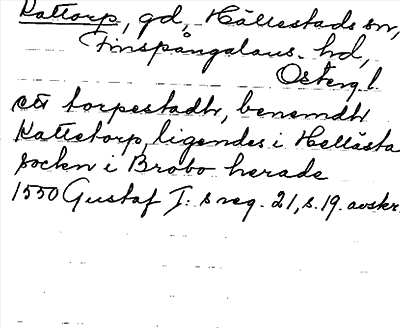 Kattorp, gd, Hällestads sn,
Finspångalans hd,
Österg. l.
ett torpestadh, benemdh
Kattetorp, ligendes i Hellästa
sockn i Brobo herade
1550 Gustaf I: s reg. 21, s. 19. avskr.